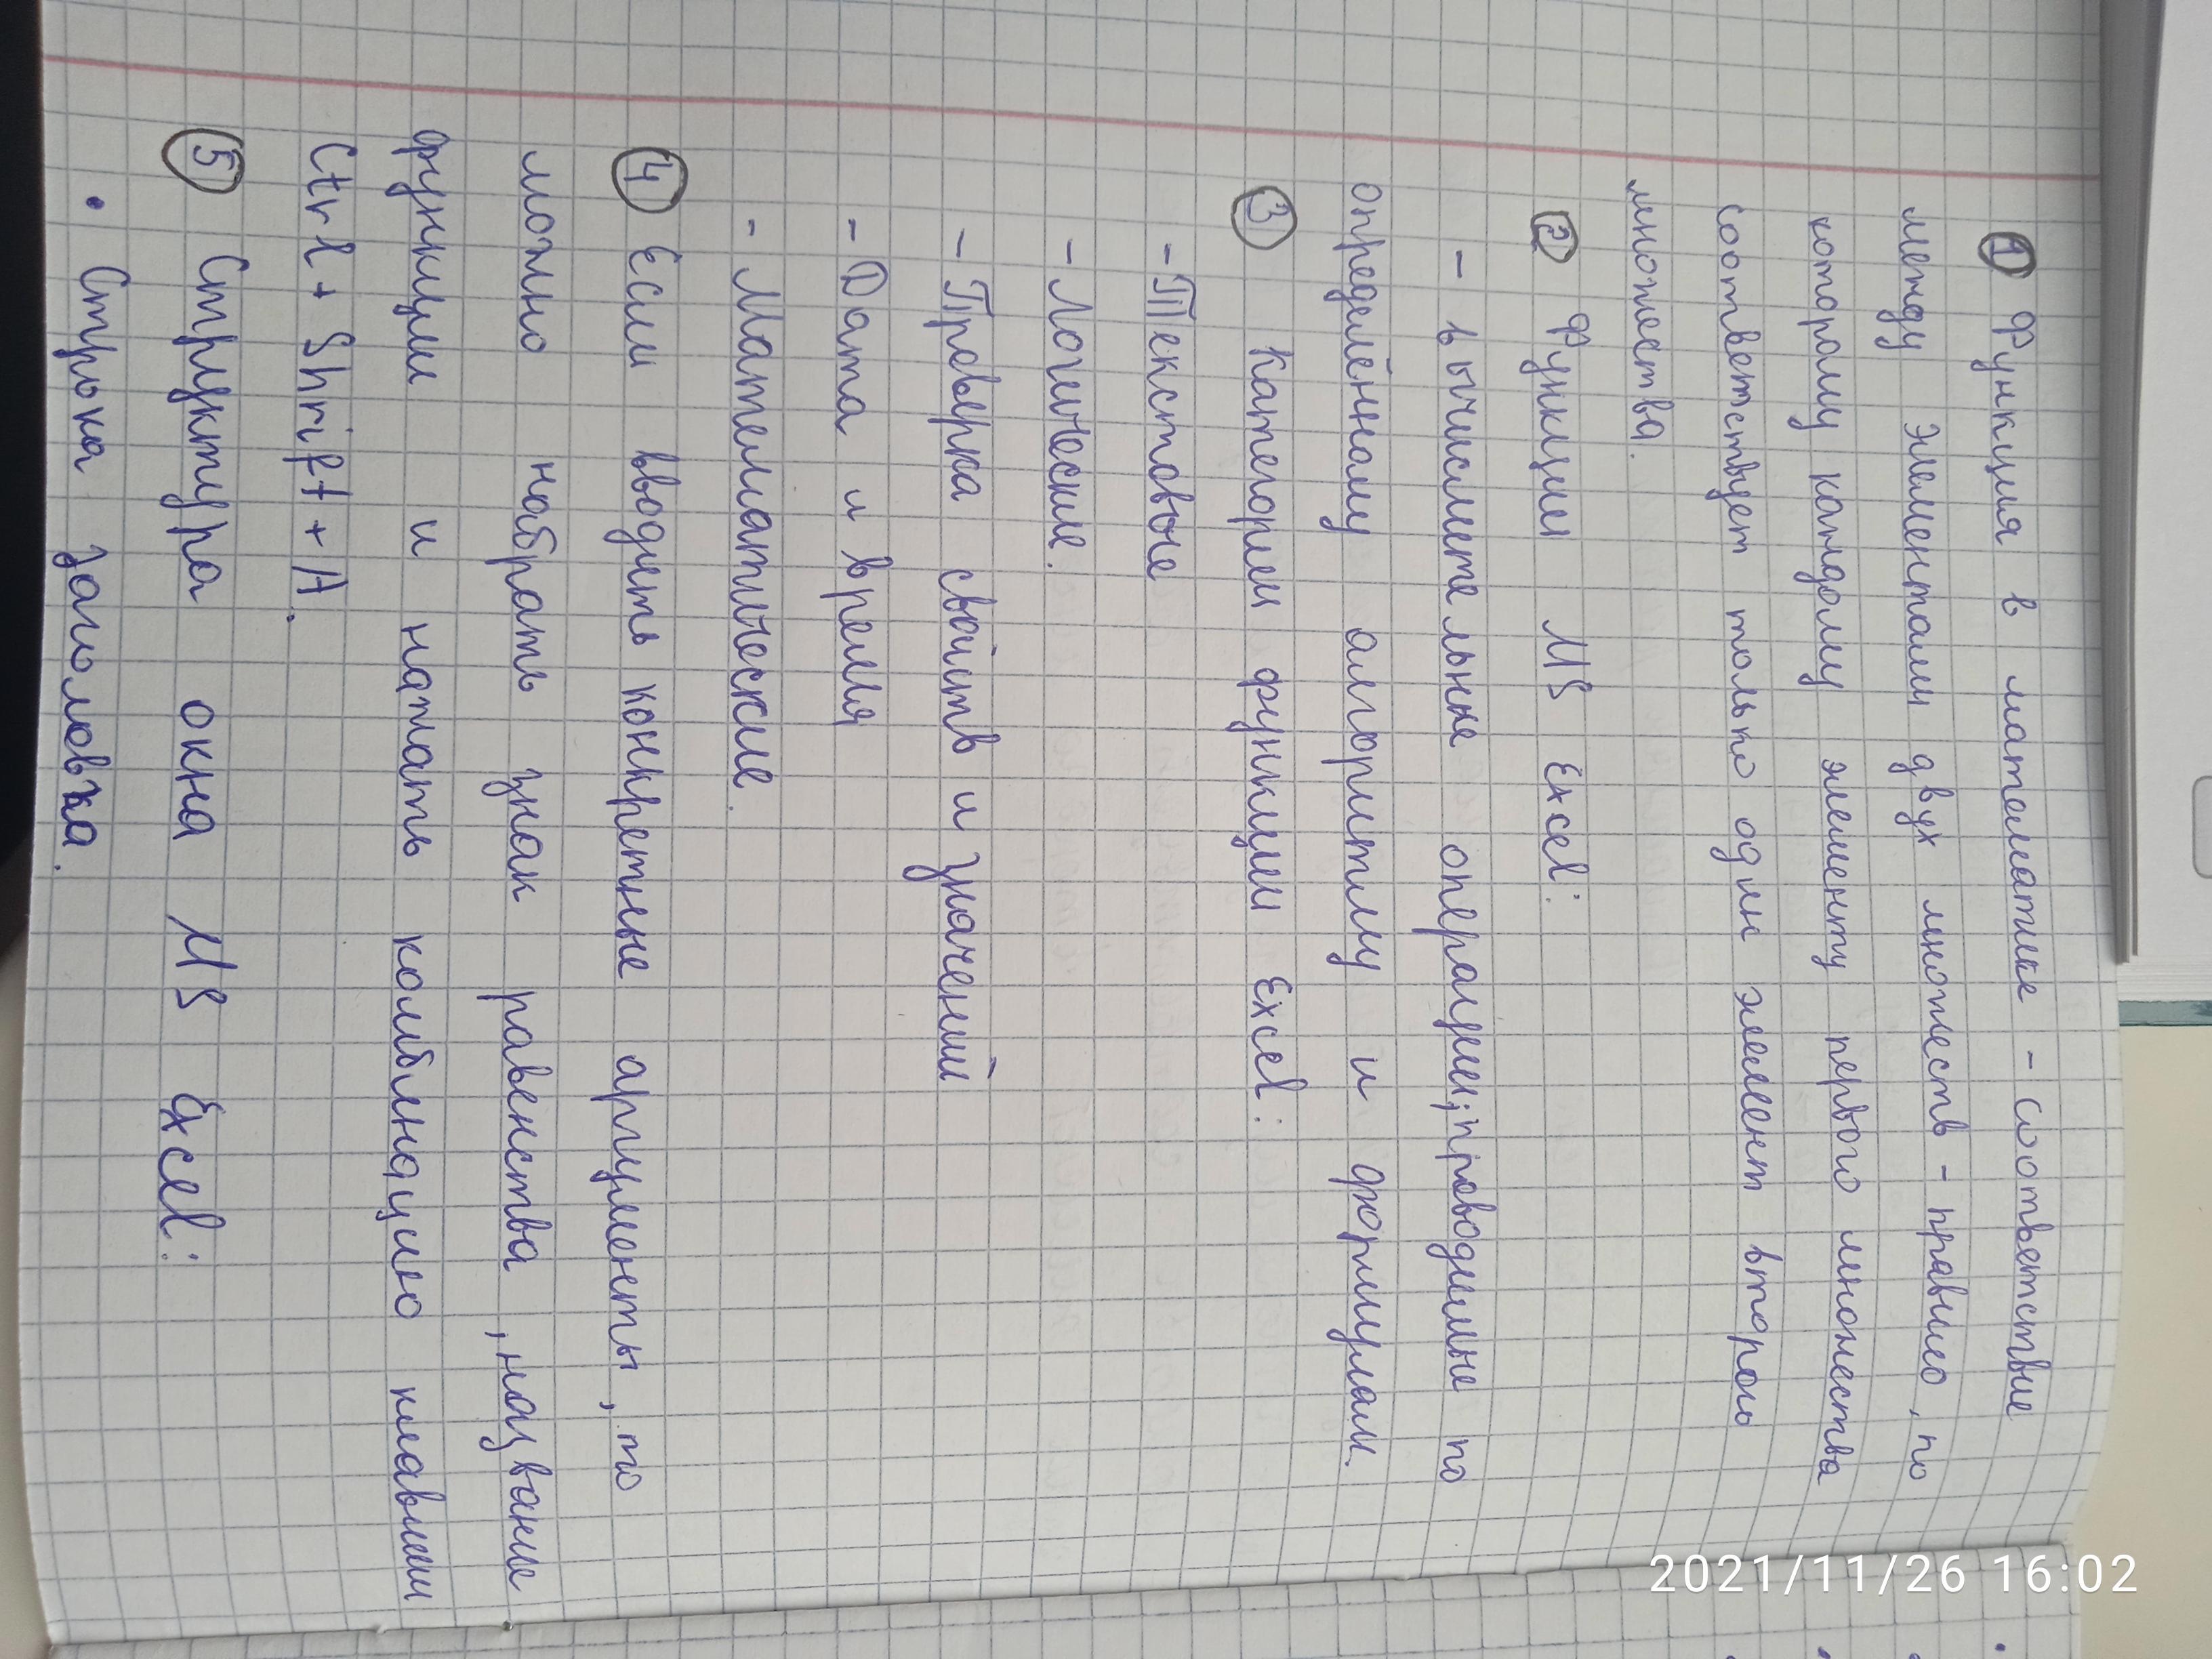 ① Функция в математике - соответствие
между элементами двух множеств - правило, по
которому каждому элементу первого множества
соответствует только один элемент второго
множества.
② Функции MS Excel:
- вычислительные операции, проводимые по
определённому алгоритму и формулам.
③ Категории функции Excel:
- Текстовые
- Логические.
- Проверка свойств и значений
- Дата и время
- Математические.
④ Если вводить конкретные аргументы, то
можно набрать знак равенства, название
функции и нажать комбинацию клавиш
Ctrl + Shrift + A.
⑤ Структура окна MS Excel:
• Строка заголовка.
2021/11/26 16:02